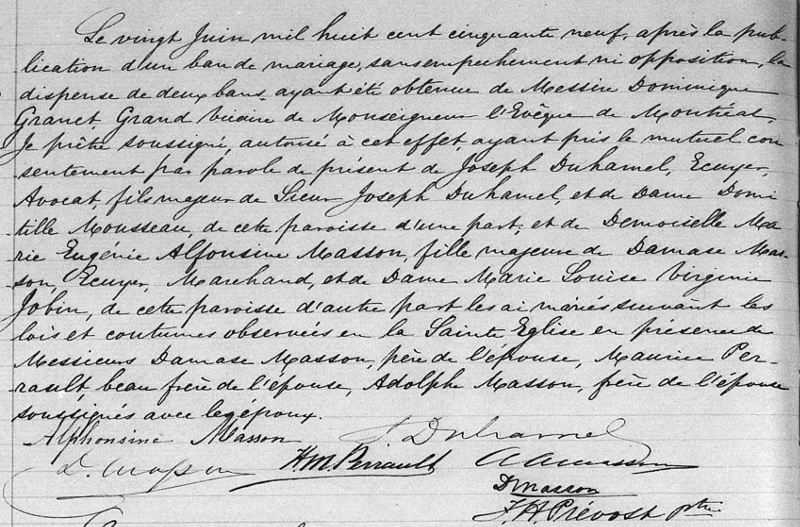 Le vingt Juin mil huit cent cinquante neuf, après la pub-
lication d'un ban de mariage, sans empechement ni opposition, la
dispense de deux bans ayant été obtenue de Messire Dominique
Granet, Grand Vicaire de Monseigneur l'Evêque de Montréal,
Je prêtre soussigné, autorisé à cet effet, ayant pris le mutuel con-
sentement par parole de présent de Joseph Duhamel, Ecuyer,
Avocat, fils majeur de Sieur Joseph Duhamel, et de Dame Domi
tille Mousseau, de cette paroisse d'une part; et de Demoiselle Ma
rie Eugénie Alfonsine Masson, fille majeure de Damase Mas-
son, Ecuyer, Marchand, et de Dame Marie Louise Virginie
Jobin, de cette paroisse d'autre part les ai mariés suivant les
lois et coutumes observées en la Sainte Eglise en présence de
Messieurs Damase Masson, père de l'épouse, Maurice Per-
rault, beau frère de l'épouse, Adolphe Masson, frère de l'épouse
soussignés avec les époux.
Alphonsine Masson J Duhamel
D. Masson H.M. Perrault A Masson
D Masson
J.H. Prévost ptre